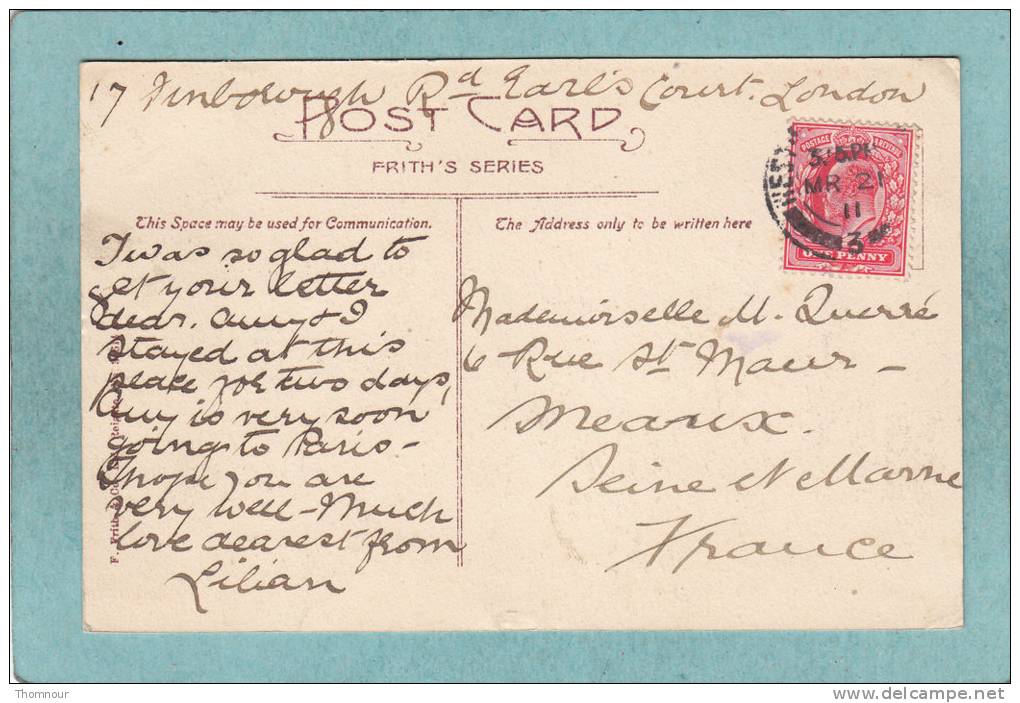 17 Finborough Rd Earl's Court. London
POST CARD
FRITH'S SERIES
This Space may be used for Communication.
The Address only to be written here
POSTAGE REVENUE
3.15 PM
MR 21
11
3
ONE PENNY
I was so glad to
get your letter
dear. Amy & I
stayed at this
place for two days,
Amy is very soon
going to Paris -
I hope you are
very well - Much
love dearest from
Lilian
Mademoiselle M. Querré
6 Rue St Maur -
Meaux.
Seine et Marne
France
F. Frith & Co. Ltd., Reigate
Thomnour
www.delcampe.net